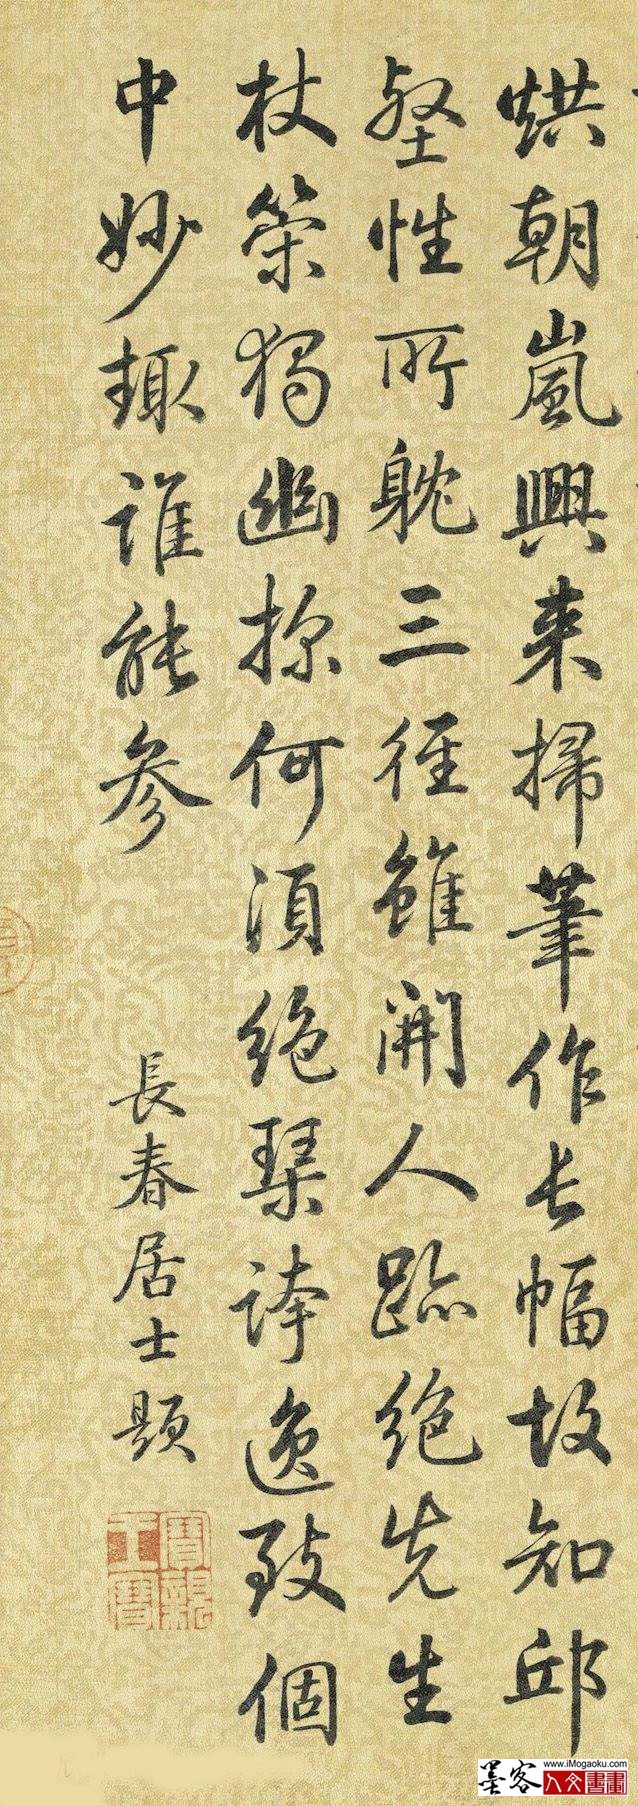 烘朝嵐興来掃筆作長幅故知邱
壑性所躭三徑雖開人跡絶先生
杖策獨幽探何須絶琹誇逸致個
中妙趣誰能參
長春居士題
寶親王寶
www.iMogaoku.com
墨客 人文書畫